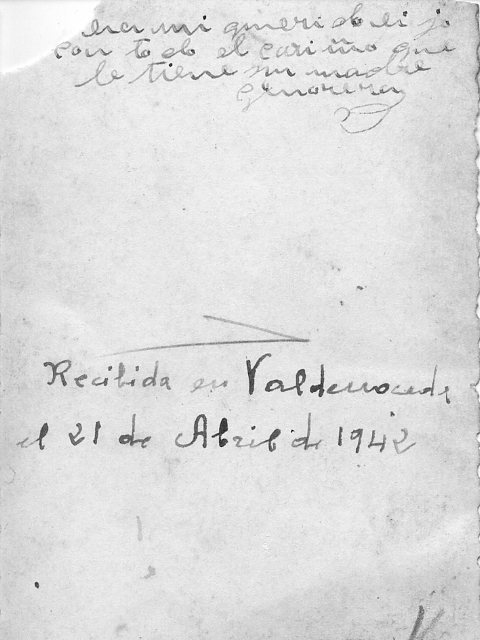 mi querido ei jo
con todo el cariño que
le tiene su madre
Genoveva
Recibida en Valdenoceda
el 21 de Abril de 1942